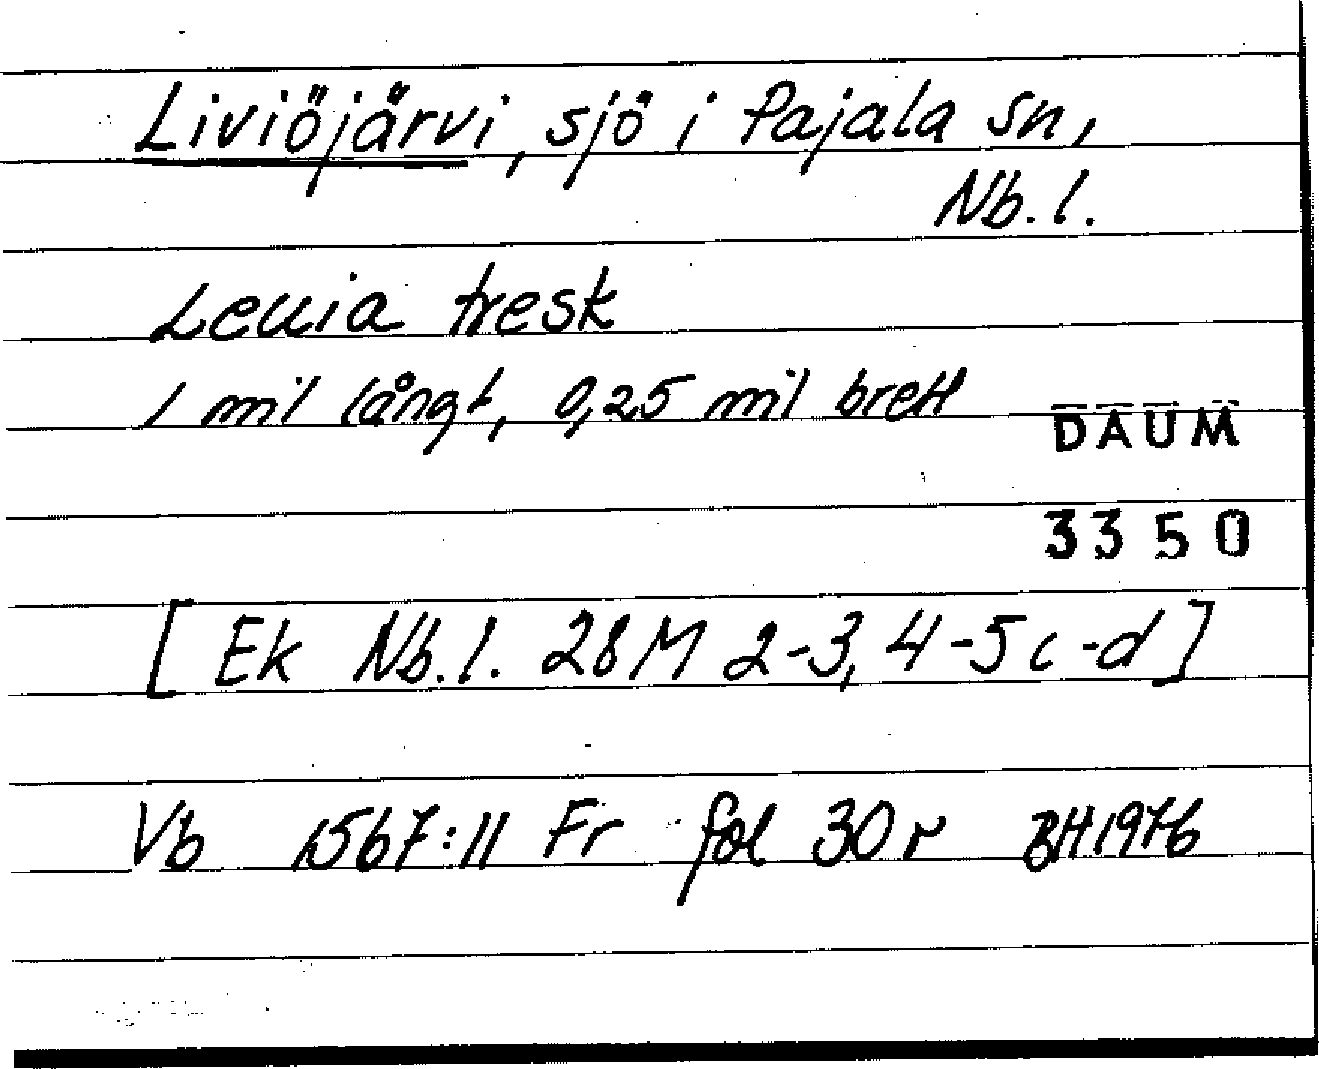 Liviöjärvi, sjö i Pajala sn,
Nb. l.
Leuia tresk
1 mil långt, 0,25 mil brett
DAUM
3350
[Ek Nb. l. 28M 2-3, 4-5 c-d]
Vb 1567:11 Fr fol 30 r BH 1976